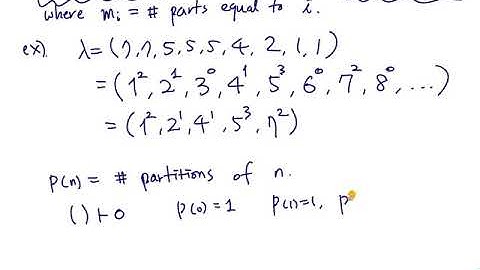 where mᵢ = # parts equal to i.
ex). λ = (7, 7, 5, 5, 5, 4, 2, 1, 1)
= (1², 2¹, 3⁰, 4¹, 5³, 6⁰, 7², 8⁰, ...)
= (1², 2¹, 4¹, 5³, 7²)
p(n) = # partitions of n.
( ) ⊢ 0 p(0) = 1 p(1) = 1, p